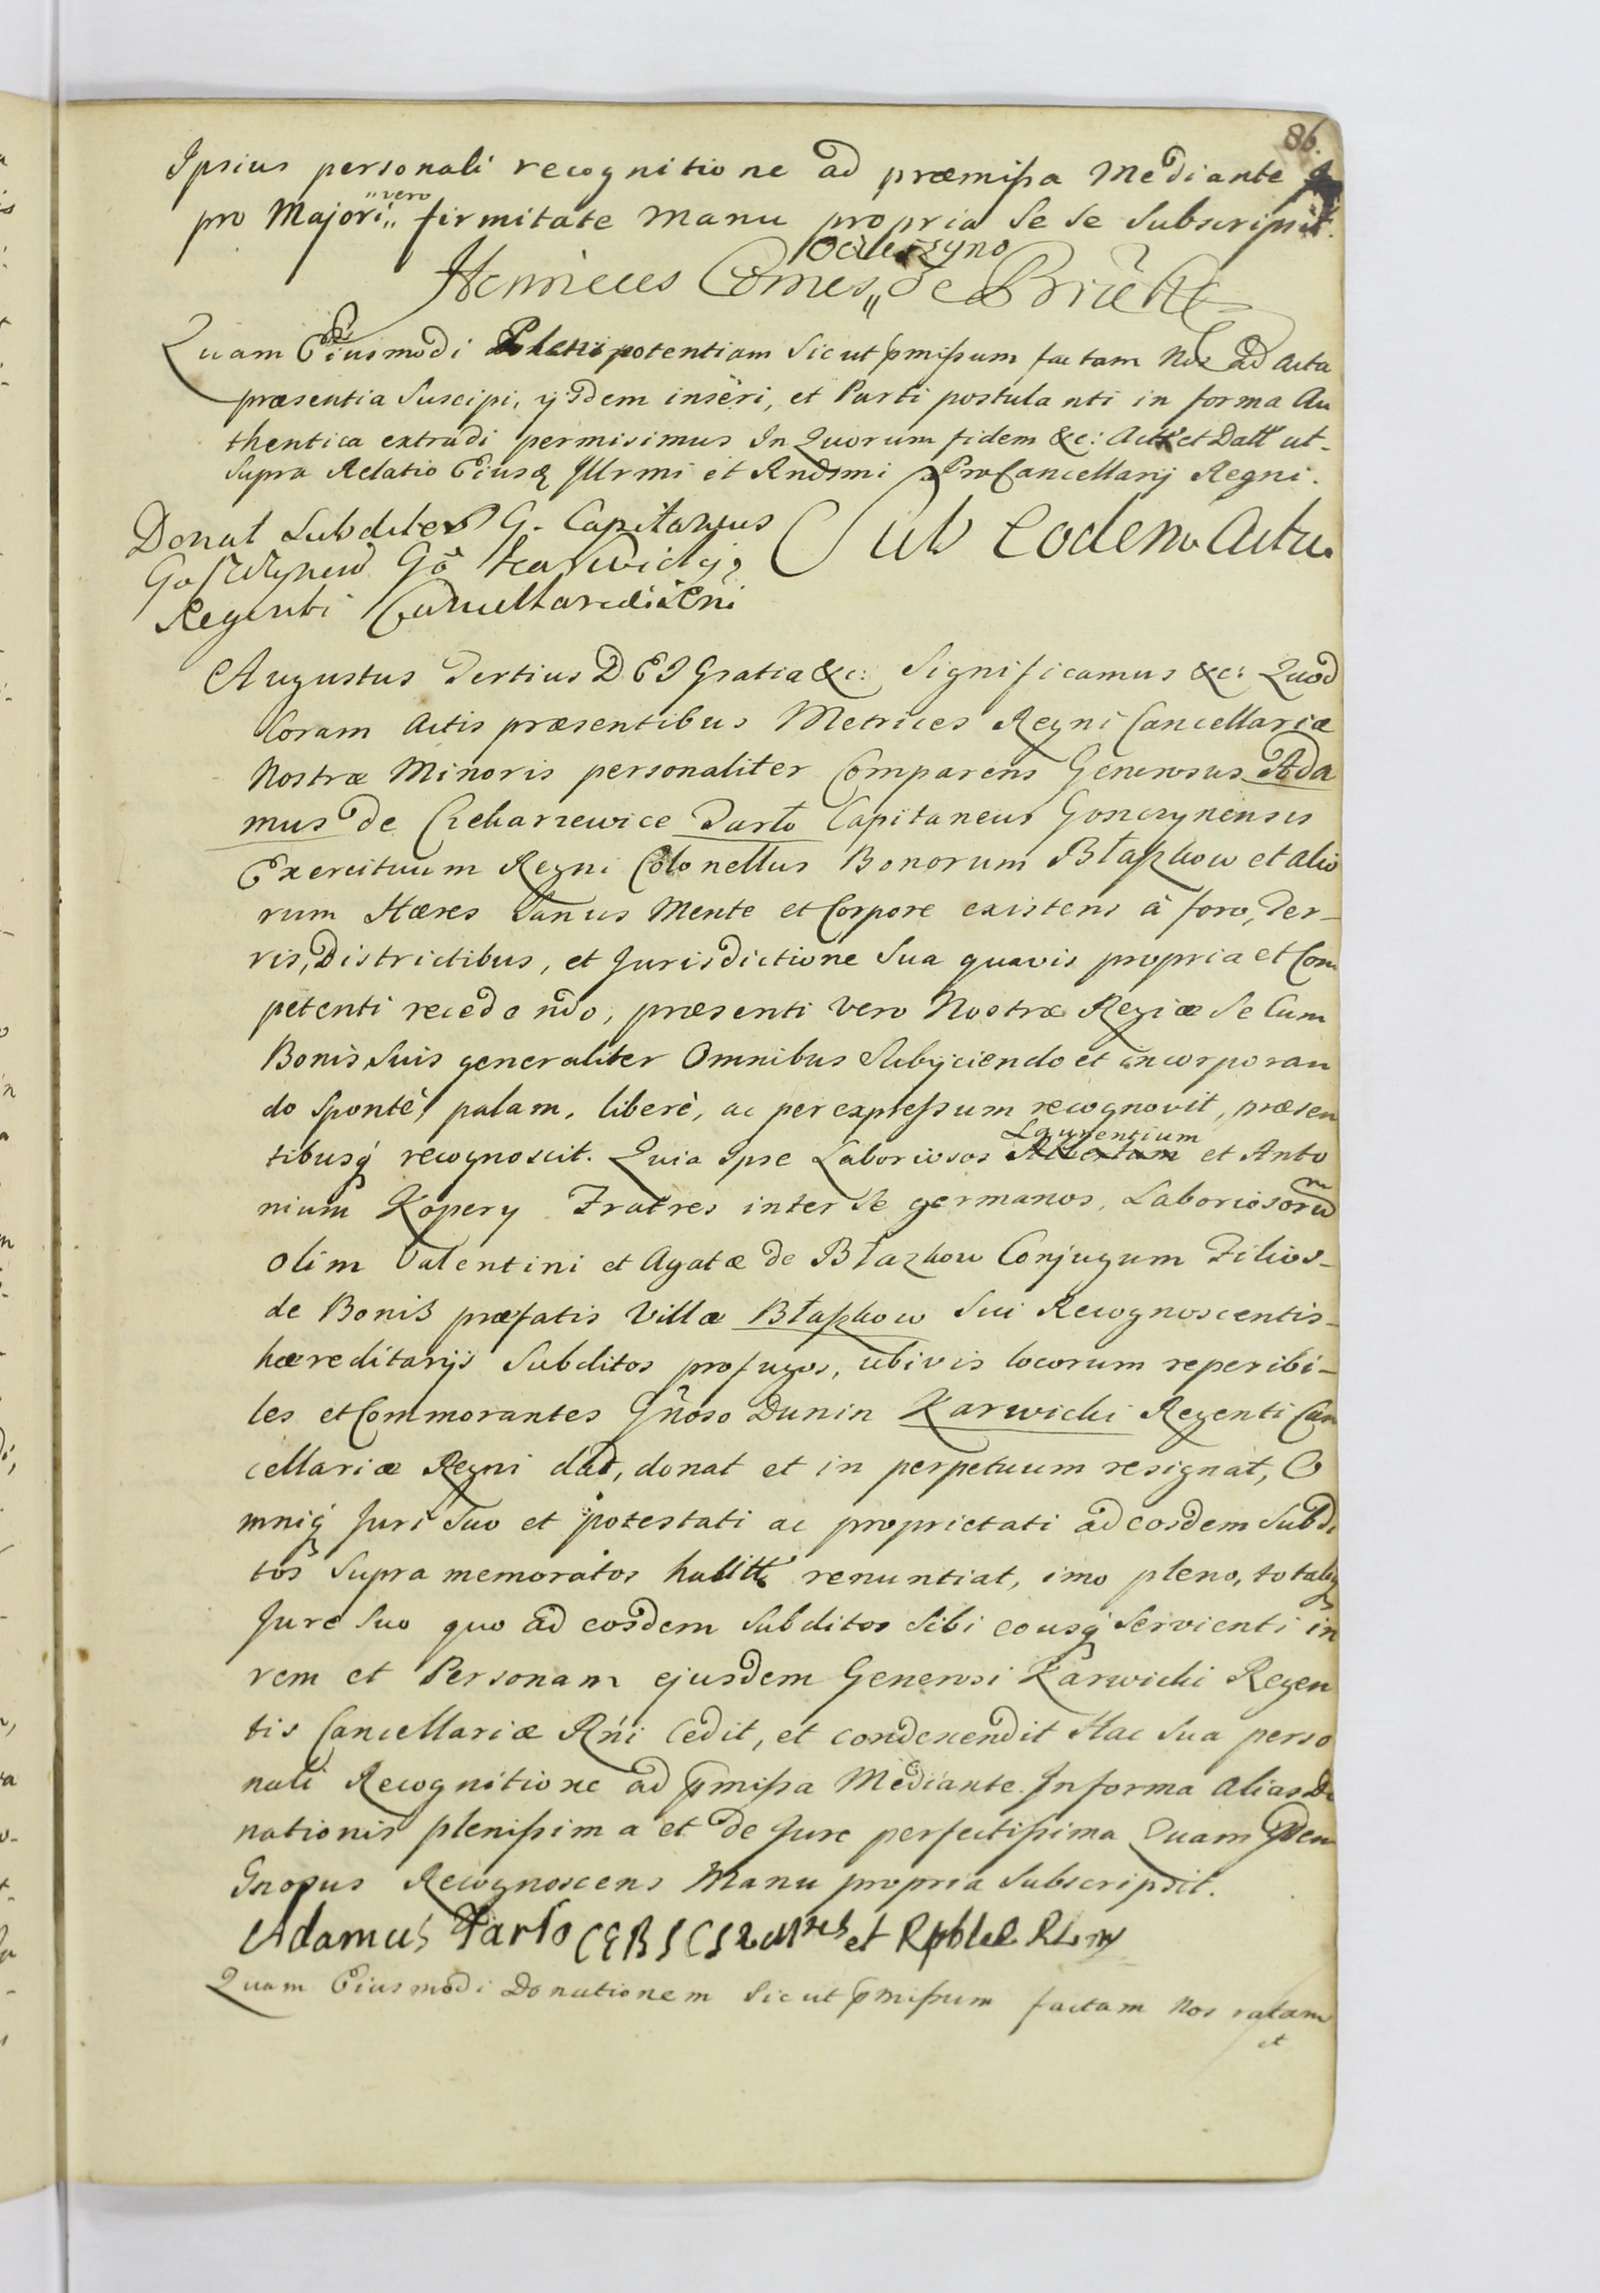 86.
Ipsius personali recognitione ad præmissa Mediante
pro Majori „vero„ firmitate Manu propria Se Se Subscripsit.
Ocieszyno
Henricus Comes „ de Brühl
Quam Eiusmodi Plenipotentiam Sicut pmissum factam Nos ad Acta
præsentia Suscipi, ijsdem inseri, et Parti postulanti in forma Au
thentica extradi permisimus In Quorum fidem &c: Act et Datt ut-
Supra Relatio Eiusq Illrmi et Rndsmi ProCancellarij Regni.
Donat Subditos G. Capitaneus
Gosczynen Gō Karwickij
Regenti Cancellariæ Rni
Sub Eodem Actu
Augustus Tertius D EI Gratia &c: Significamus &c: Quod
Coram Actis præsentibus Metrices Regni Cancellariæ
Nostræ Minoris personaliter Comparens Generosus Ada
mus de Czekarzewice Tarło Capitaneus Gonczynensis
Exercituum Regni Colonellus Bonorum Błaszkow et alio
rum Hæres Sanus Mente et Corpore existens à foro, Ter-
ris, Districtibus, et Jurisdictione Sua quavis propria et Com
petenti recedendo, præsenti vero Nostræ Regiæ Se Cum
Bonis Suis generaliter Omnibus Subijciendo et incorporan
do Sponte, palam, liberè, ac per expressum recognovit, præsen
tibusq recognoscit. Quia Ipse Laboriosos Albertum Laurentium et Anto
nium Kopery Fratres inter Se germanos, Laboriosoru
m
olim Valentini et Agatæ de Błazkow Conjugum Filios-
de Bonis præfatis Villæ Błaszkow Sui Recognoscentis-
hæreditarijs Subditos profugos, ubivis locorum reperibi-
les et Commorantes Gnoso Dunin Karwicki Regenti Can
cellariæ Regni dat, donat et in perpetuum resignat, O
mniq Juri Suo et potestati ac proprietati ad eosdem Subdi
tos Supra memoratos habitt renuntiat, imo pleno, totaliq
Jure Suo quo ad eosdem Subditos Sibi eousq Servienti in
rem et Personam ejusdem Generosi Karwicki Regen
tis Cancellariæ Rni Cedit, et condescendit Hac Sua perso
nali Recognitione ad pmissa Mediante. In forma alias Do
nationis plenissima et de Jure perfectissima Quam Idem
Gnosus Recognoscens Manu propria Subscripsit.
Adamus Tarło
Quam Eiusmodi Donationem Sicut pmissum factam Nos ratam
et